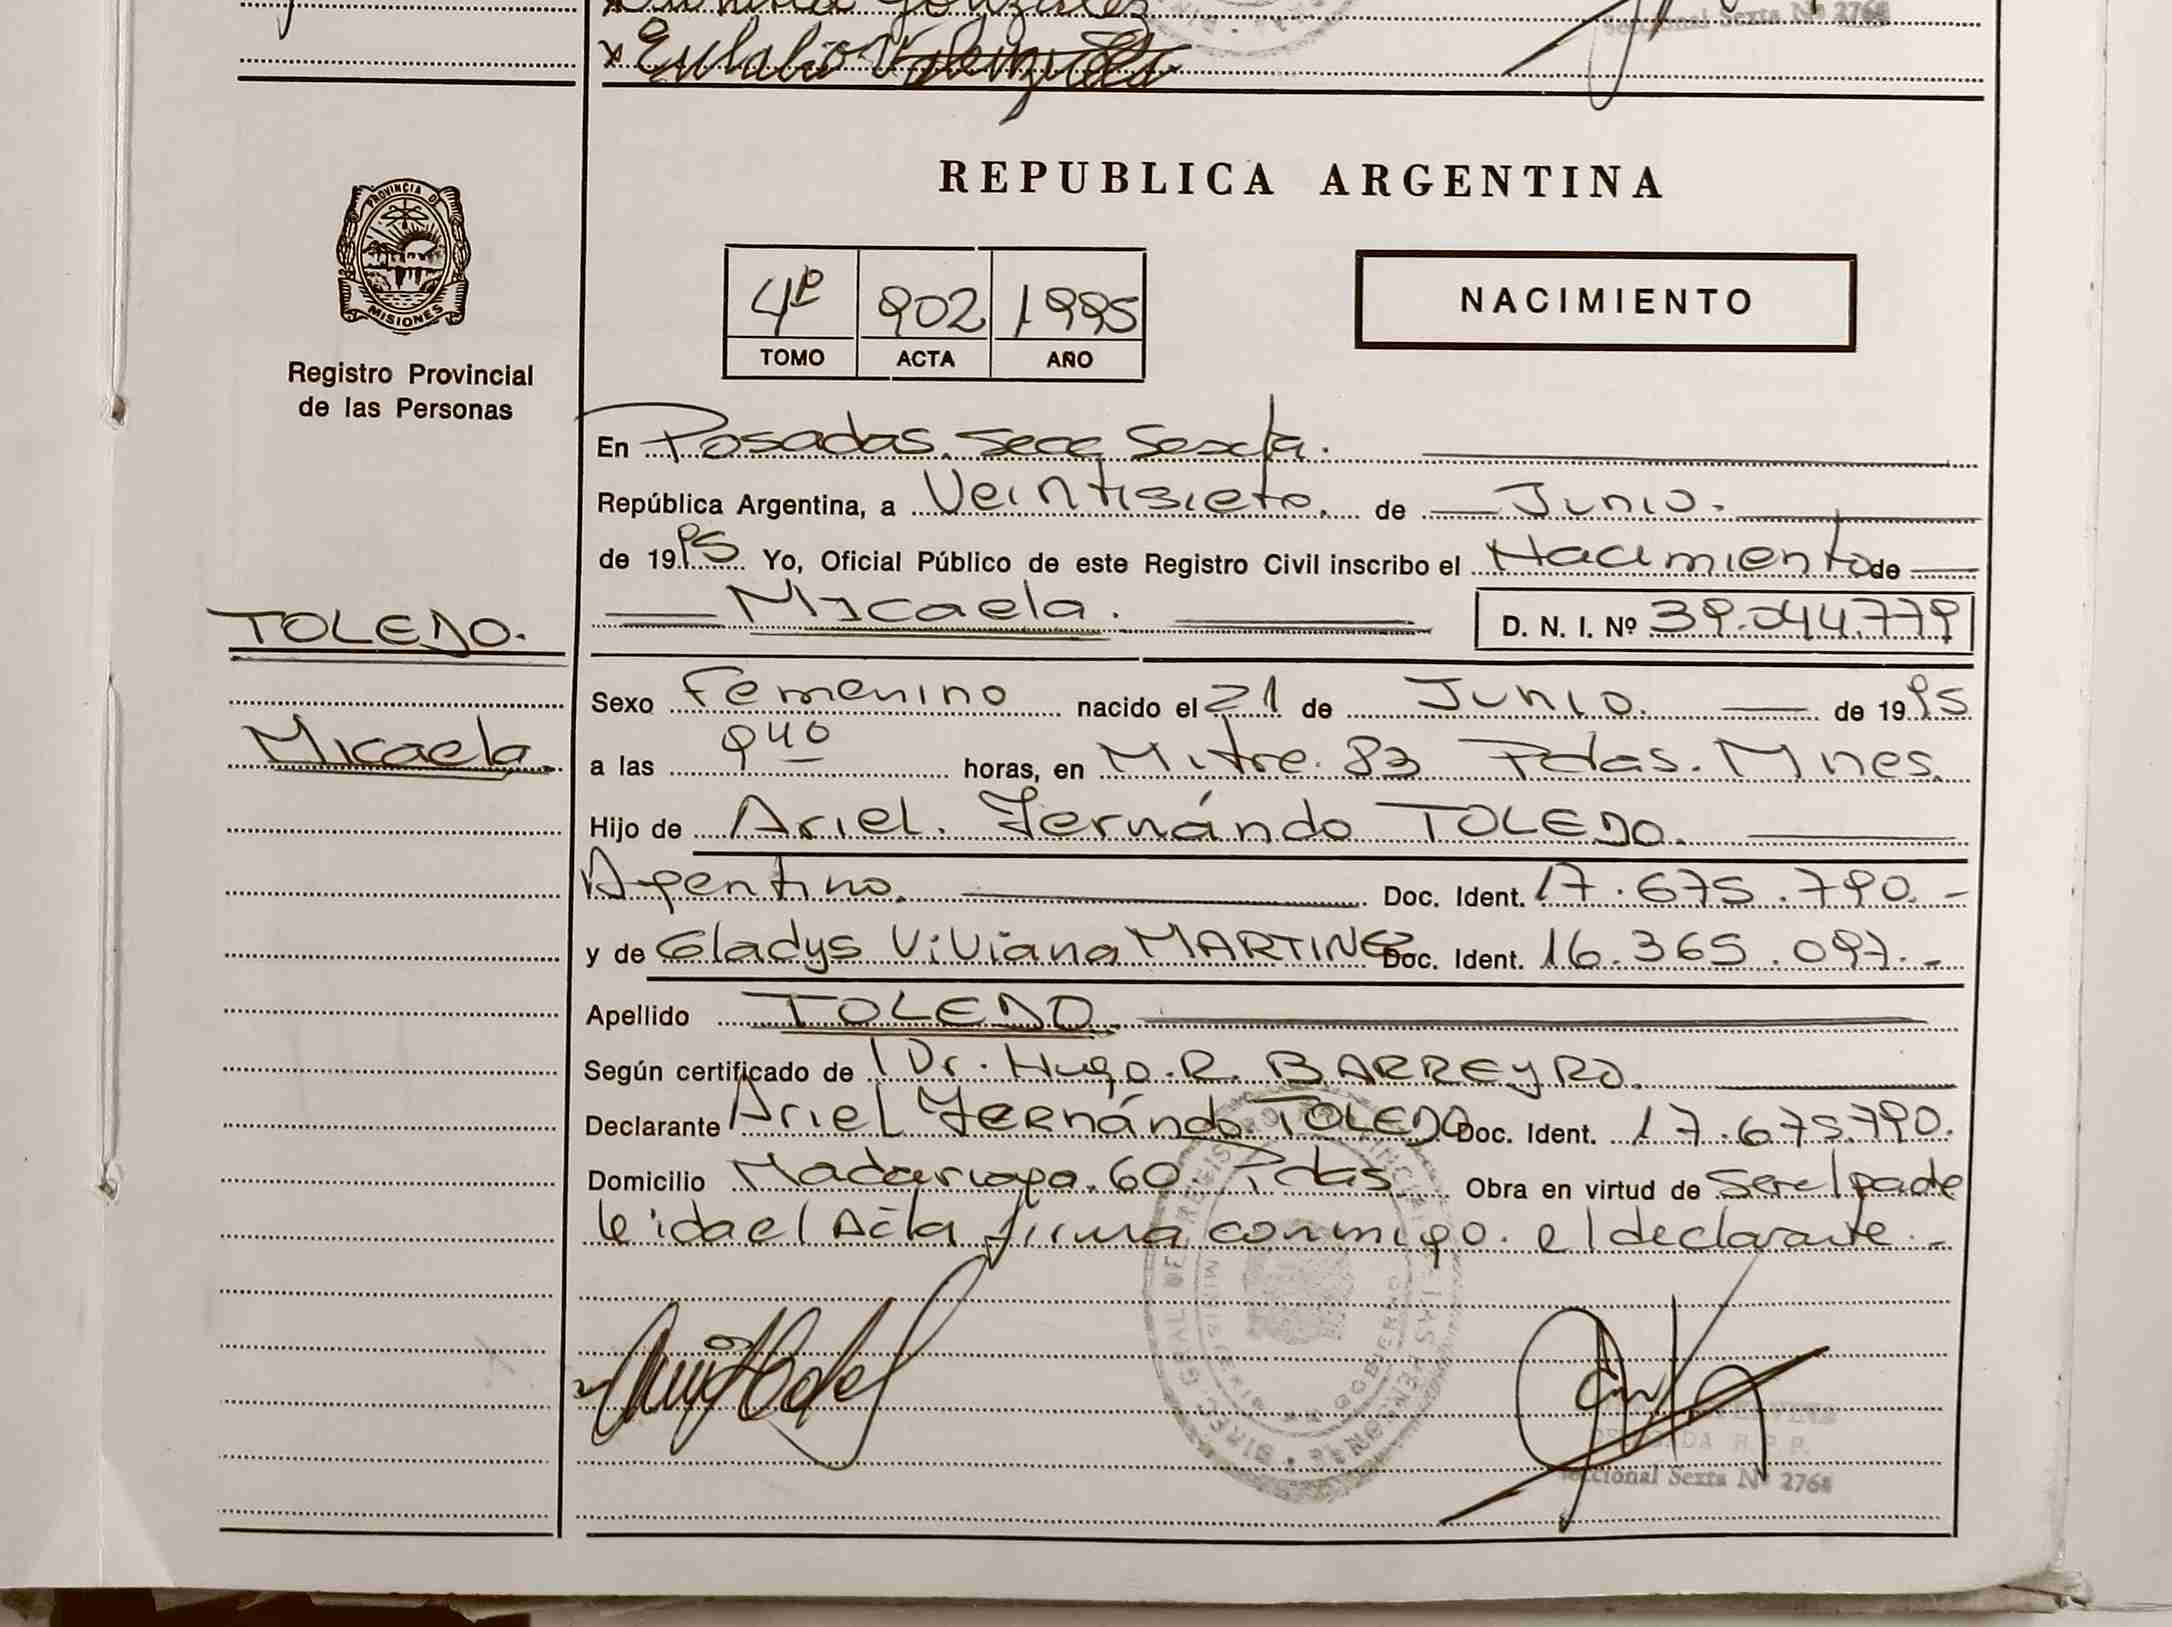 Gonzalez
Seccional Sexta Nº 2768
x Eulalio
REPUBLICA ARGENTINA
PROVINCIA DE
MISIONES
4º 902 1995
TOMO ACTA AÑO
NACIMIENTO
Registro Provincial
de las Personas
En Posadas. Secc Sexta.
República Argentina, a Veintisiete. de Junio.
de 1995 Yo, Oficial Público de este Registro Civil inscribo el Nacimiento de
Micaela. D. N. I. Nº 39.044.779
TOLEDO.
Micaela.
Sexo Femenino nacido el 21 de Junio. de 1995
a las 9 40 horas, en Mitre. 83 Pdas. Mnes.
Hijo de Ariel. Fernándo TOLEDO.
Argentino. Doc. Ident. 17.675.790.-
y de Gladys Viviana MARTINEZ Doc. Ident. 16.365.097.-
Apellido TOLEDO.
Según certificado de Dr. Hugo. R. BARREYRO.
Declarante Ariel Fernándo TOLEDO Doc. Ident. 17.675.790.
Domicilio Madariaga. 60. Pdas. Obra en virtud de ser el padre
leida el Acta firma conmigo. el declarante.-
Seccional Sexta Nº 2768